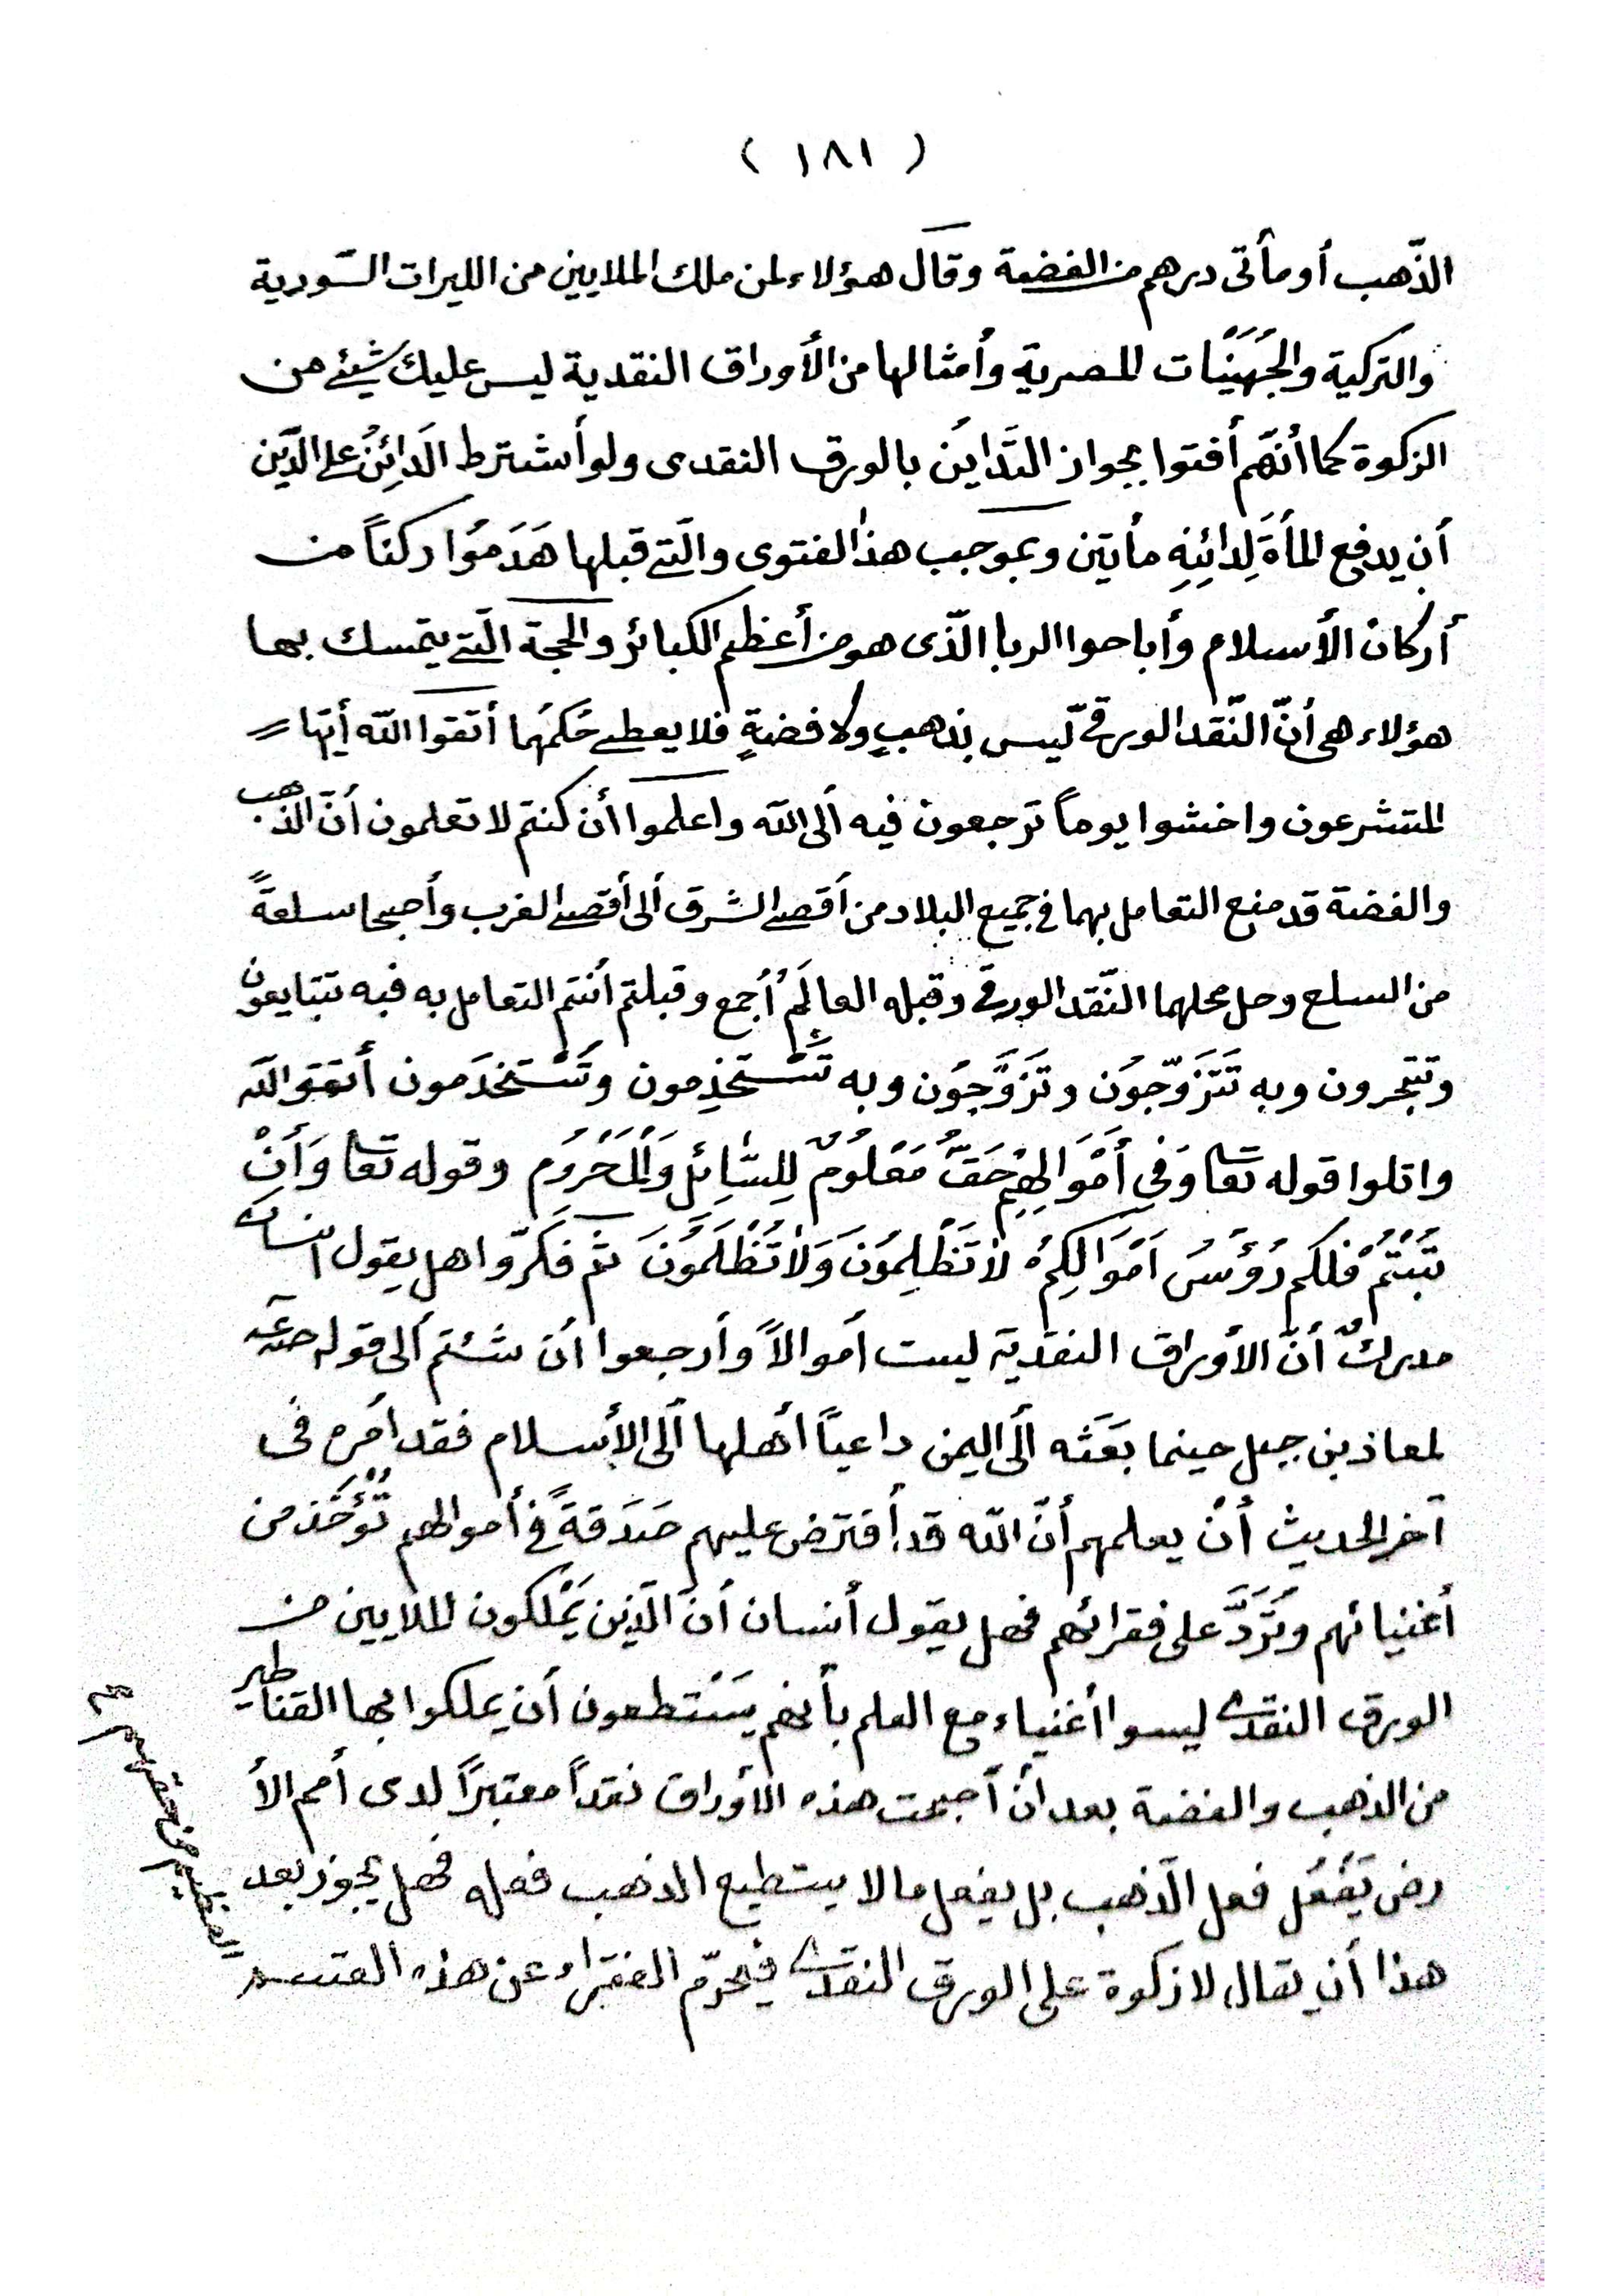 ( ١٨١ )
الذّهب أو مأتى درهم من الفضة وقال هؤلاء لمن ملك الملايين من الليرات السّورية
والتركية والجُهَيَنّات المصرية وأمثالها من الأوراق النقدية ليس عليك شيئ من
الزكوة كما أنّهم أفتوا بجواز التَّدايَن بالورق النقدى ولو أشترط الَدائِنُ على الدَّين
أن يدفع المأةَ لِدائِنِهِ مأتين وبموجب هذا الفتوى والّتى قبلها هَدَمُوا ركناً من
أركان الأسلام وأباحوا الربا الّذى هو من أعظم الكبائر والحجة الّتى يتمسك بها
هؤلاء هى أنّ النّقد الورقىّ ليس بذهبٍ ولا فضةٍ فلا يعطى حُكمَهُما أتقوا الله أيّها
المتشرعون واخشوا يوماً ترجعون فيه ألى الله واعلموا أن كنتم لا تعلمون أنّ الذّهب
والفضة قد منع التعامل بهما فى جميع البلاد من أقصى الشرق ألى أقصى الغرب وأصبحا سلعةً
من السلع وحل محلهما النّقد الورقى وقبله العالَمُ أجمع وقبلتم أنتم التعامل به فبه تتبايعون
وتتجرون وبه تَتَزَوّجوُن وتَزَوَّجوُن وبه تَسْتَخذِمون وتَسْتَخدَمون أتقوا الله
واتلوا قوله تعا وَفي أَمْوَالِهِمْ حَقٌّ مَعْلوُمٌ لِلسَّائِلِ وَالْمَحْرُومِ وقوله تعا وَأَنْ
تُبْتُمْ فلكم رُؤُسُ اَمْوَالِكِمْ لاٰ تَظْلِمُونَ وَلاٰ تُظْلَمُونَ ثم فكرّوا هل يقول انسان
مدركٌ أنّ الأوراق النقدية ليست أموالاً وأرجعوا أن شئتم ألى قوله صلعم
لمعاذ بن جبل حينما بَعَثه ألَى اليمن داعياً أهلها ألى الأسلام فقد أمره فى
آخر الحديث أنْ يعلمهم أنّ الله قد أفترض عليهم صَدَقةً فى أموالهم تُؤْخَذ من
أغنيائهم وتُرَدَّ على فقرائهم فهل يقول أنسان أنّ الّذين يَمْلكون الملايين من
الورق النقدى ليسوا أغنياء مع العلم بأنهم يَسْتطعون أن يملكوا بها القناطير
من الذهب والفضة بعد أن أصبحت هذه الأوراق نقداً معتبراً لدى أمم الأ
رض يَفْعَل فعل الّذهب بل يفعل ما لا يستطيع الذهب فعله فهل يجوز بعد
هذا أن يقال لا زكوة على الورق النقدى فيحرّم الفقراء عن هذه القسم
العظيم من حقهم